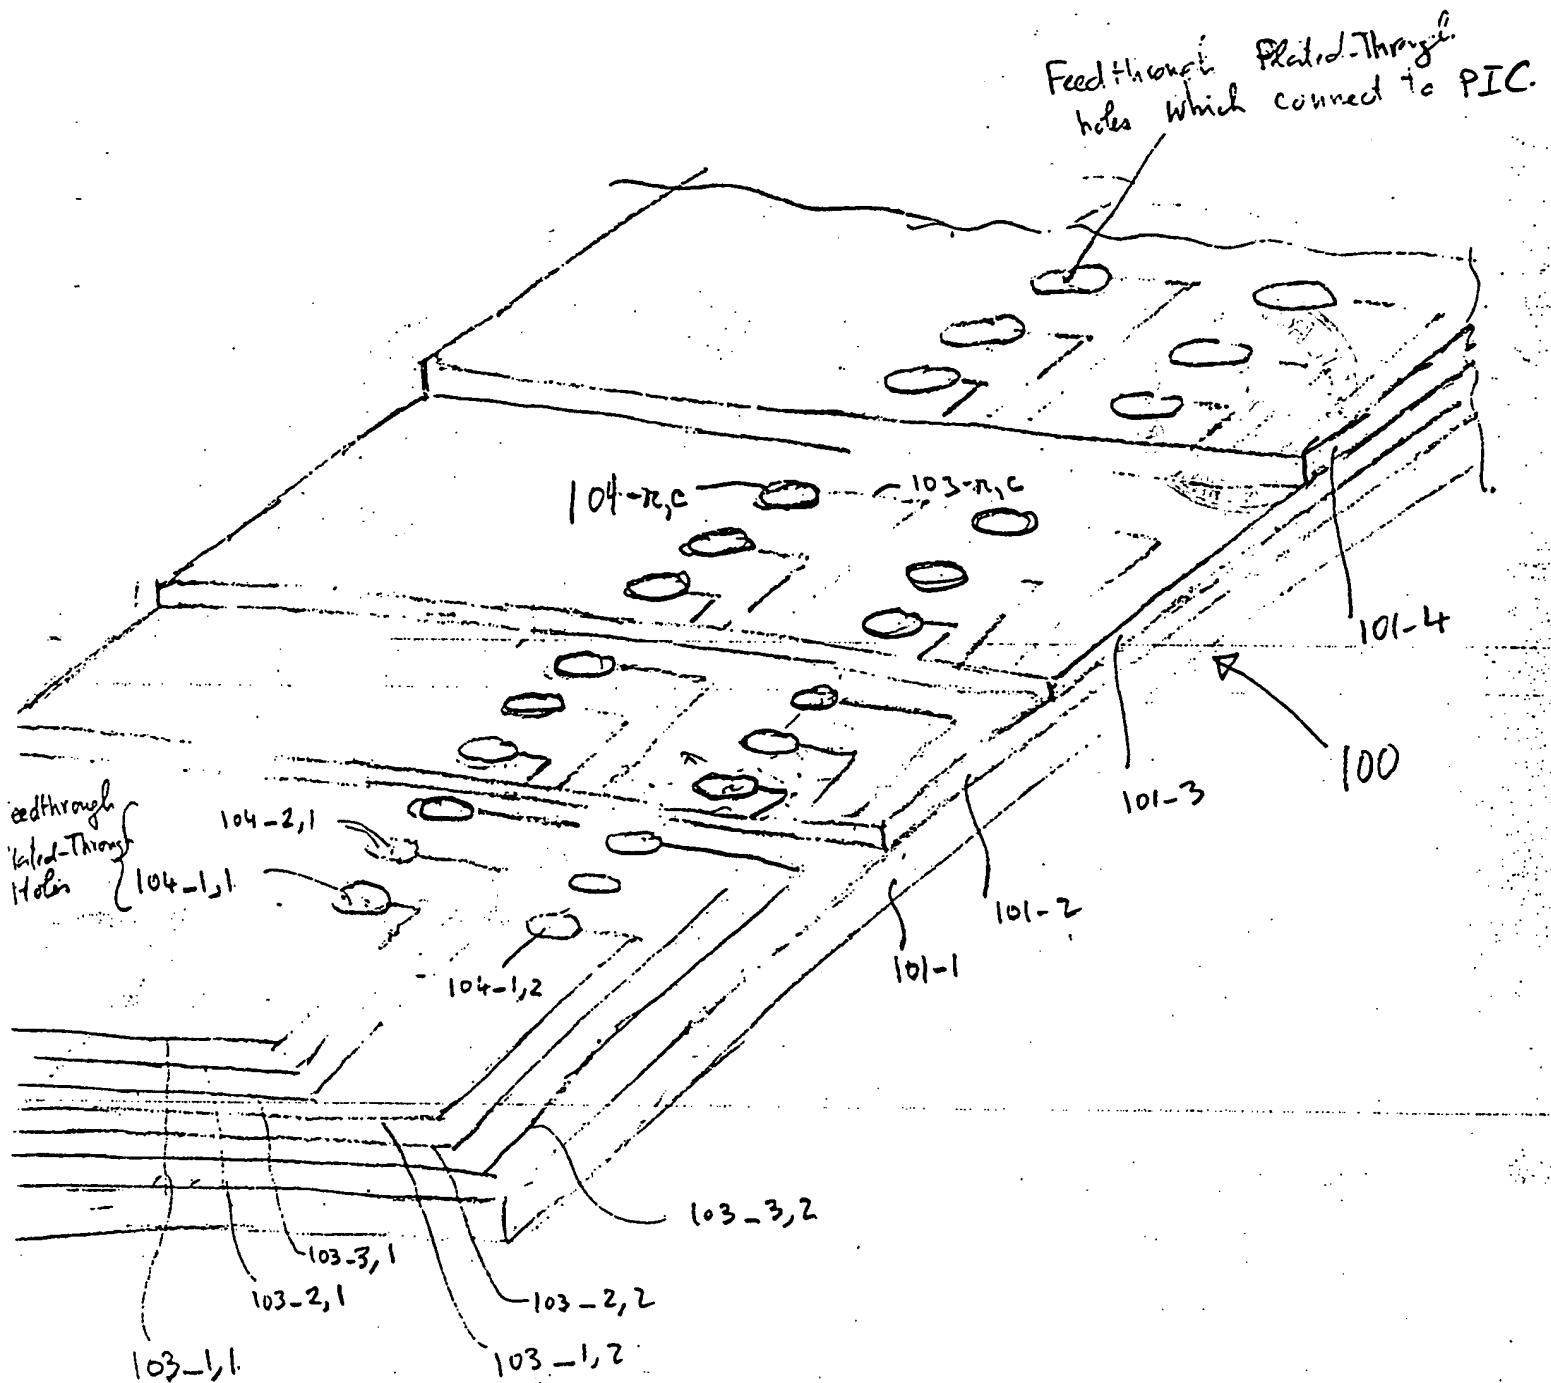 Feedthrough Plated-Through
holes which connect to PIC.
104-r,c
103-r,c
101-4
100
101-3
eedthrough
lated-Through
Holes
104-2,1
104-1,1
101-2
101-1
104-1,2
103-3,2
103-3,1
103-2,1
103-2,2
103-1,1
103-1,2